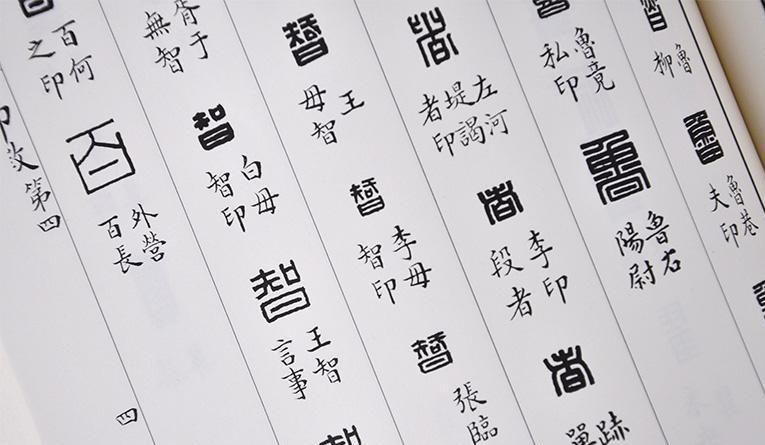 魯
柳
魯
魯巷
夫印
魯竟
私印
魯
魯右
陽尉
者
左河
堤謁
者印
者
李印
段者
者
智
王
毋智
智
李毋
智印
智
張臨
胥于
無智
智
白毋
智印
智
王智
言事
百何
之印
百
外營
百長
第四
四